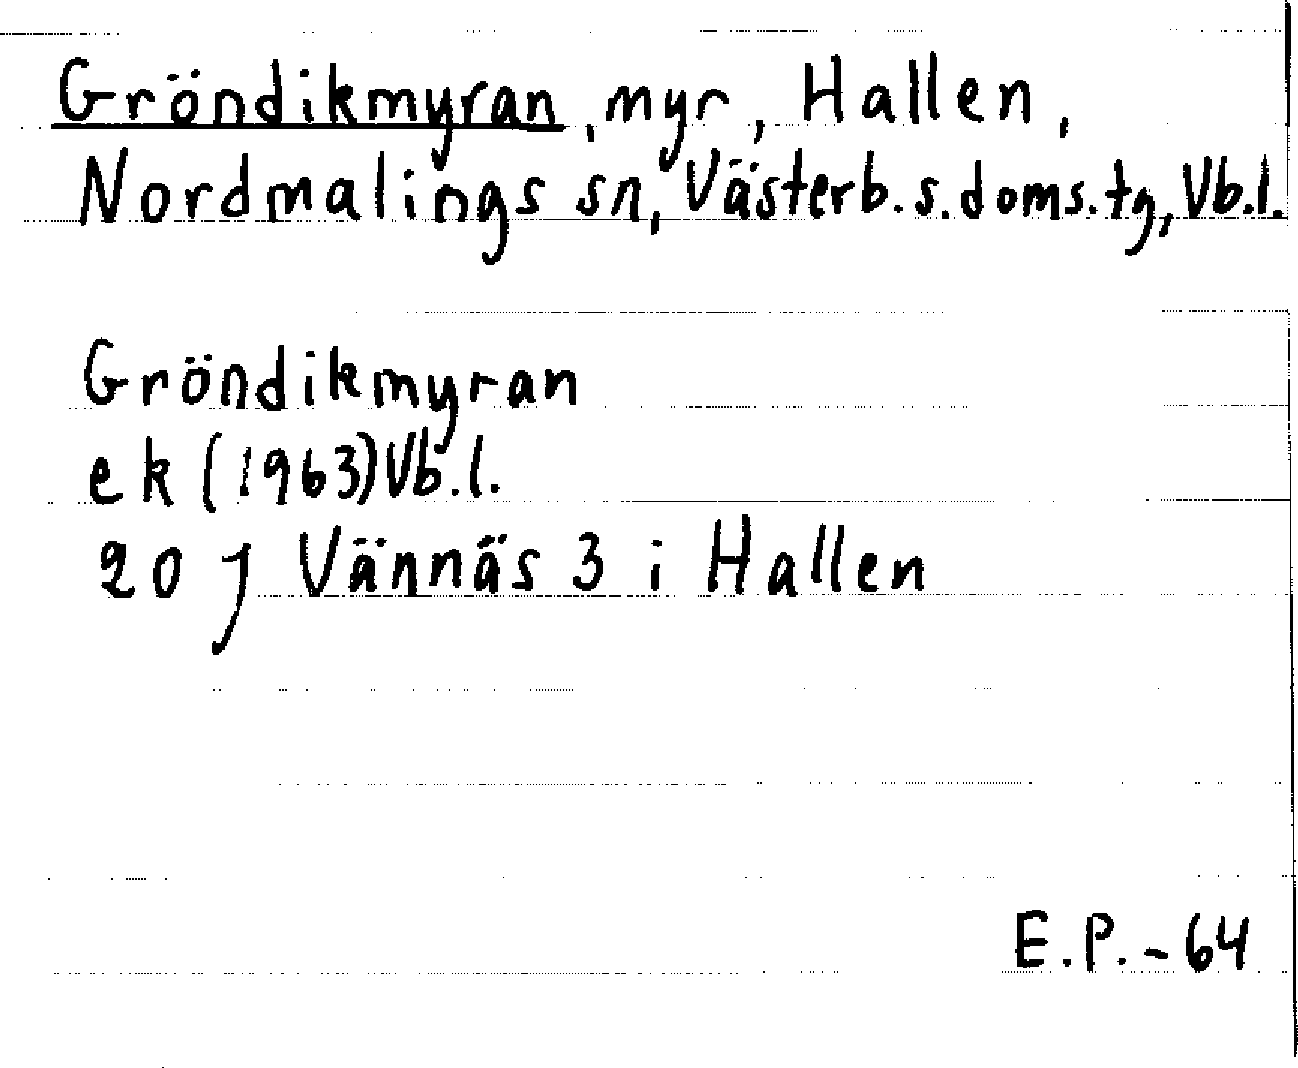 Gröndikmyran, myr, Hallen,
Nordmalings sn, Västerb. s. doms. tg, Vb. l.
Gröndikmyran
ek (1963) Vb. l.
20 J Vännäs 3 i Hallen
E. P. - 64